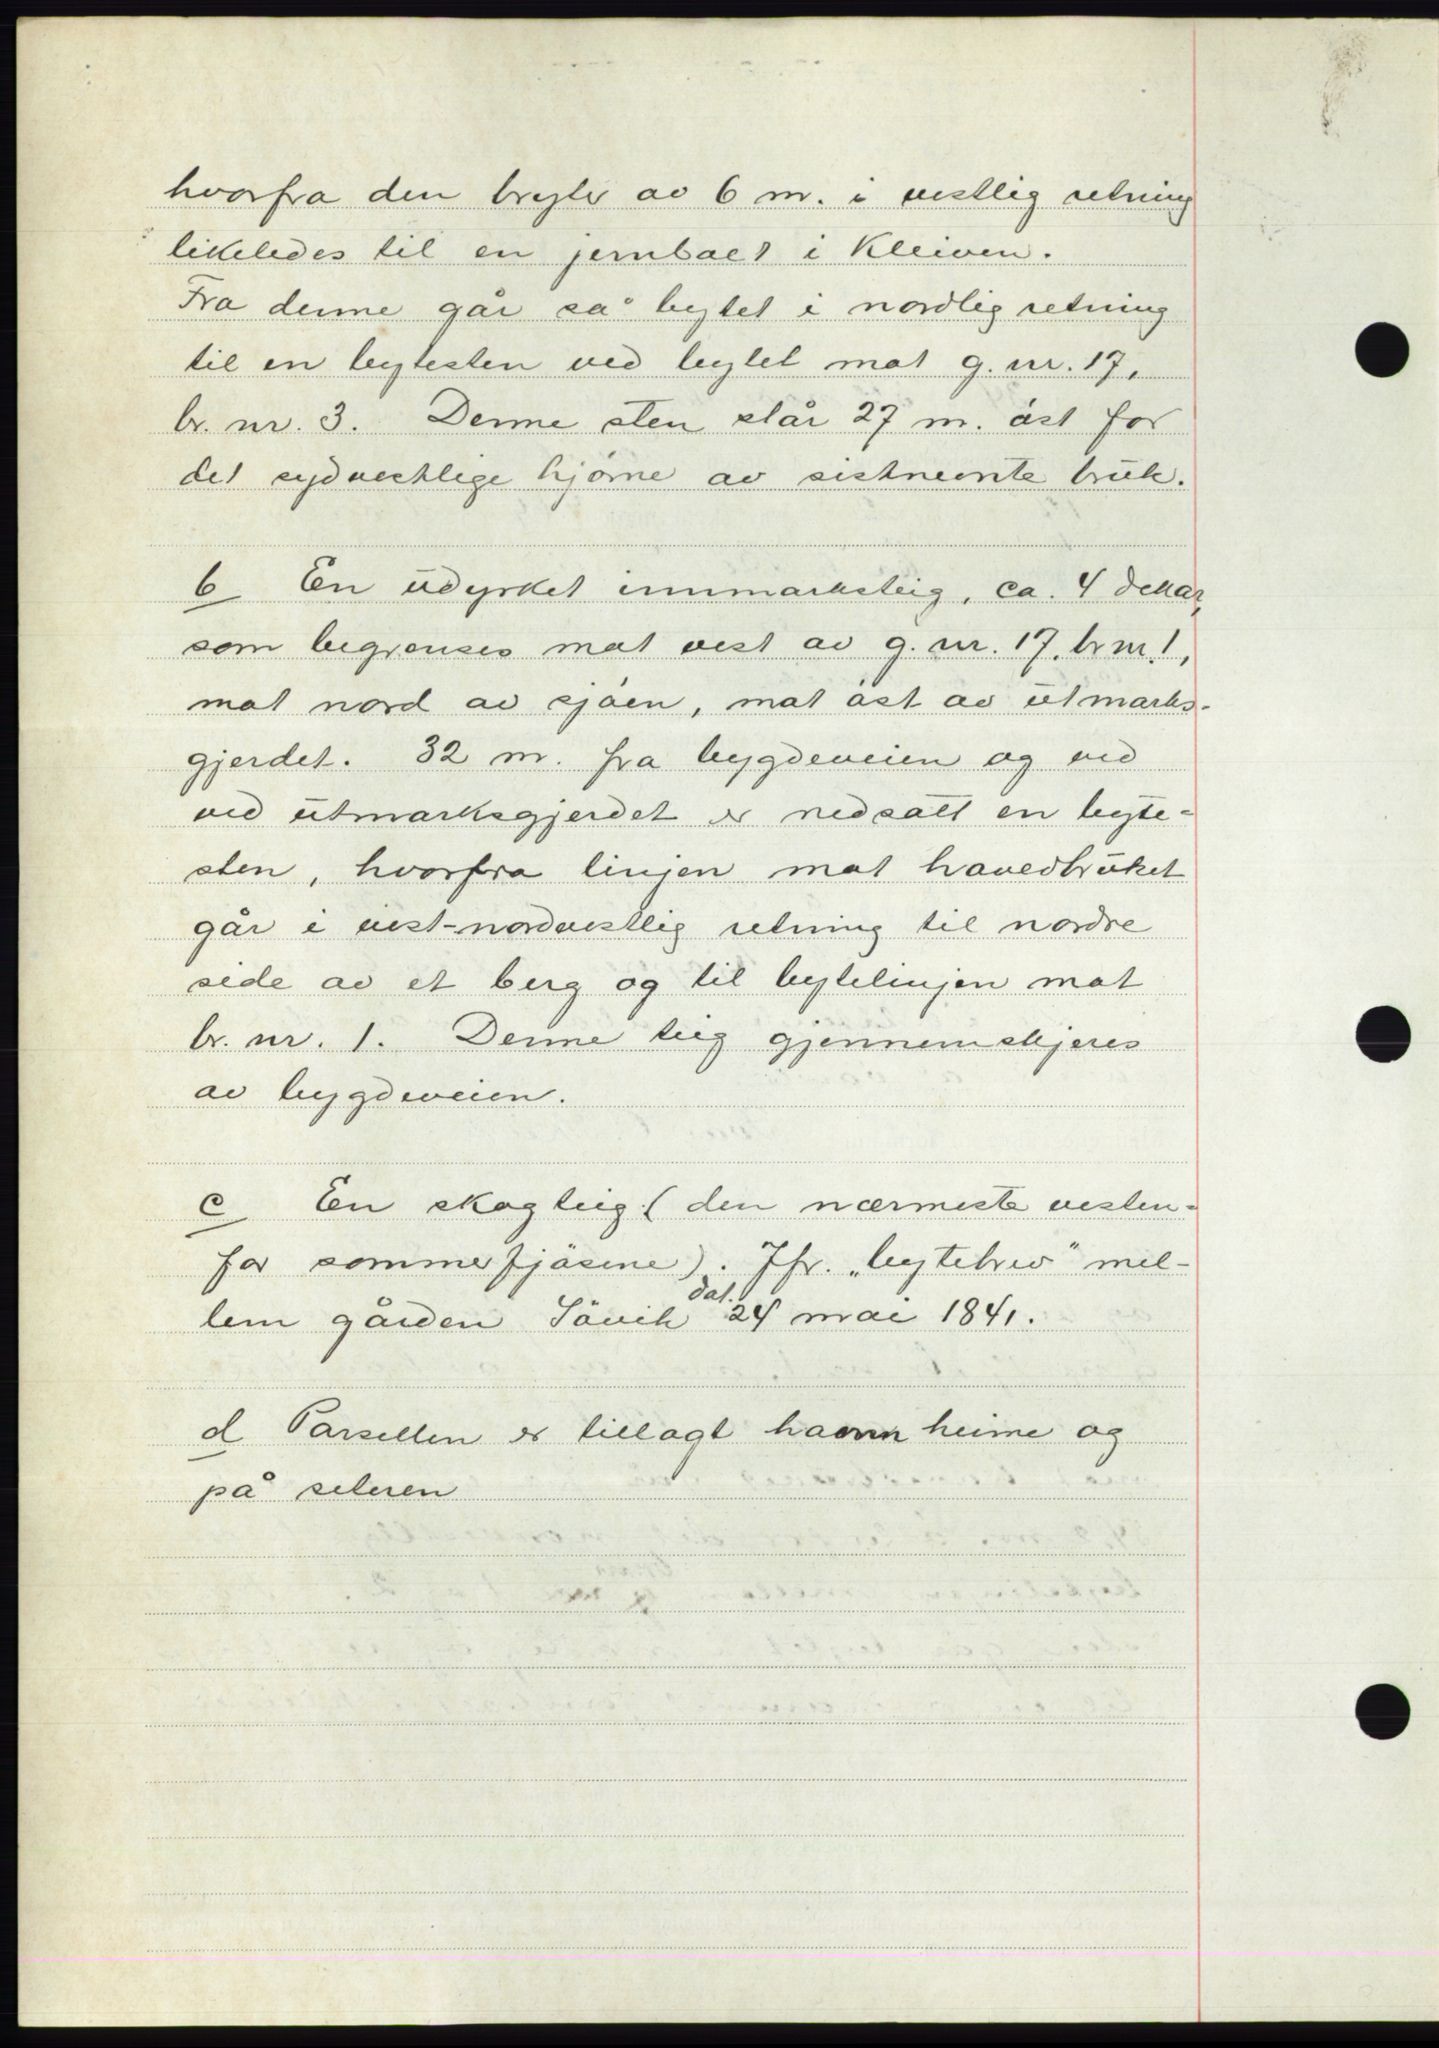 hvorfra den bryter av 6 m. i vestlig retning
likeledes til en jernbolt i Kleiven.
Fra denne går så bytet i nordlig retning
til en bytesten ved bytet mot g. nr. 17,
br. nr. 3. Denne sten står 27 m. öst for
det sydvestlige hjörne av sistnevnte bruk.
b En udyrket innmarksteig, ca. 4 dekar,
som begrenses mot vest av g. nr. 17. br nr. 1,
mot nord av sjöen, mot öst av utmarks-
gjerdet. 32 m. fra bygdeveien og ved
ved utmarksgjerdet er nedsatt en byte-
sten, hvorfra linjen mot hovedbruket
går i vest-nordvestlig retning til nordre
side av et berg og til bytelinjen mot
br. nr. 1. Denne teig gjennemskjeres
av bygdeveien.
c En skogteig (den nærmeste vesten-
for sommerfjösene). Jfr. „bytebrev" mel-
lem gården Sövik dat. 24 mai 1841.
d Parsellen er tillagt havn heime og
på seteren